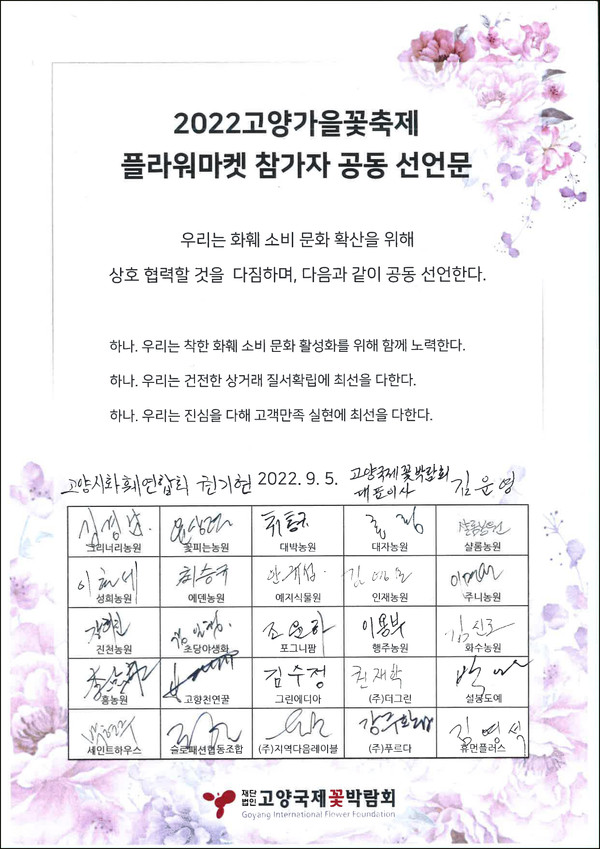 2022고양가을꽃축제
플라워마켓 참가자 공동 선언문
우리는 화훼 소비 문화 확산을 위해
상호 협력할 것을 다짐하며, 다음과 같이 공동 선언한다.
하나. 우리는 착한 화훼 소비 문화 활성화를 위해 함께 노력한다.
하나. 우리는 건전한 상거래 질서확립에 최선을 다한다.
하나. 우리는 진심을 다해 고객만족 실현에 최선을 다한다.
고양시화훼연합회 권기현 2022. 9. 5. 고양국제꽃박람회 대표이사 김운영
그리너리농원 꽃피는농원 대박농원 대자농원 샬롬농원
성희농원 에덴농원 예지식물원 인재농원 주니농원
조윤하 이용부
진천농원 초당야생화 포그니팜 행주농원 화수농원
김수정 권재학
홍농원 고향천연꿀 그린에디아 (주)더그린 설봉도예
김영석
세인트하우스 슬로패션협동조합 (주)지역다음레이블 (주)푸르다 휴먼플러스
재단법인 고양국제꽃박람회
Goyang International Flower Foundation